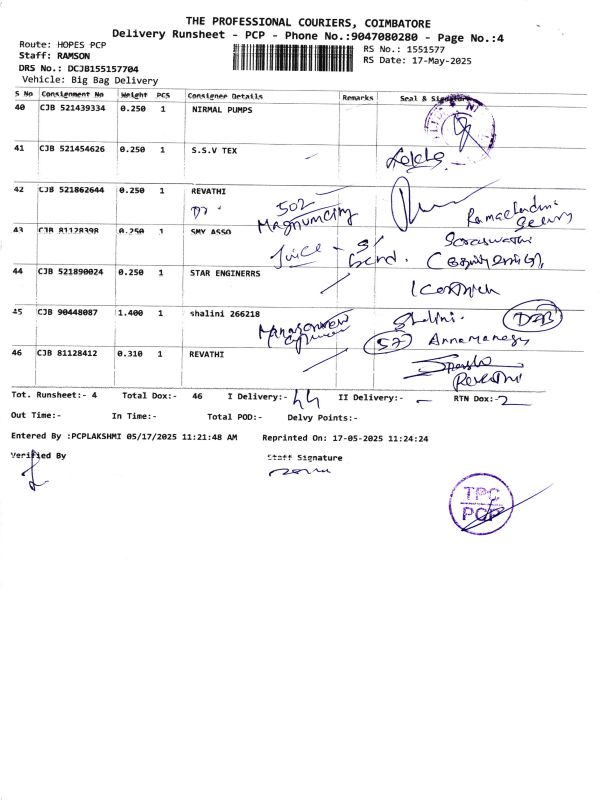 THE PROFESSIONAL COURIERS, COIMBATORE
Delivery Runsheet - PCP - Phone No.:9047080280 - Page No.:4
Route: HOPES PCP
RS No.: 1551577
Staff: RAMSON
RS Date: 17-May-2025
DRS No.: DCJB155157704
Vehicle: Big Bag Delivery
S No Consignment No Weight PCS Consignee Details Remarks Seal & Signature
40 CJB 521439334 0.250 1 NIRMAL PUMPS
41 CJB 521454626 0.250 1 S.S.V TEX
42 CJB 521862644 0.250 1 REVATHI
502
Magnumcity
43 CJB 81128398 0.250 1 SMY ASSO
44 CJB 521890024 0.250 1 STAR ENGINERRS
45 CJB 90448087 1.400 1 shalini 266218
Shalini.
57
46 CJB 81128412 0.310 1 REVATHI
Revathi
Tot. Runsheet:- 4 Total Dox:- 46 I Delivery:- 44 II Delivery:- – RTN Dox:- 2
Out Time:- In Time:- Total POD:- Delvy Points:-
Entered By :PCPLAKSHMI 05/17/2025 11:21:48 AM Reprinted On: 17-05-2025 11:24:24
Verified By Staff Signature
TPC
PCP